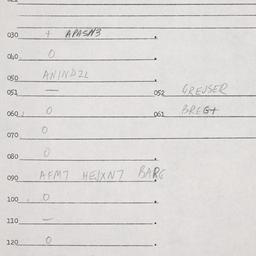 030 + APASN3
040 0
050 ANIND2L
051 — 052 GREUSER
060 0 061 BREG+
070 0
080 0
090 AFM7 HE/XN7 BARG
100 0
110 —
120 0